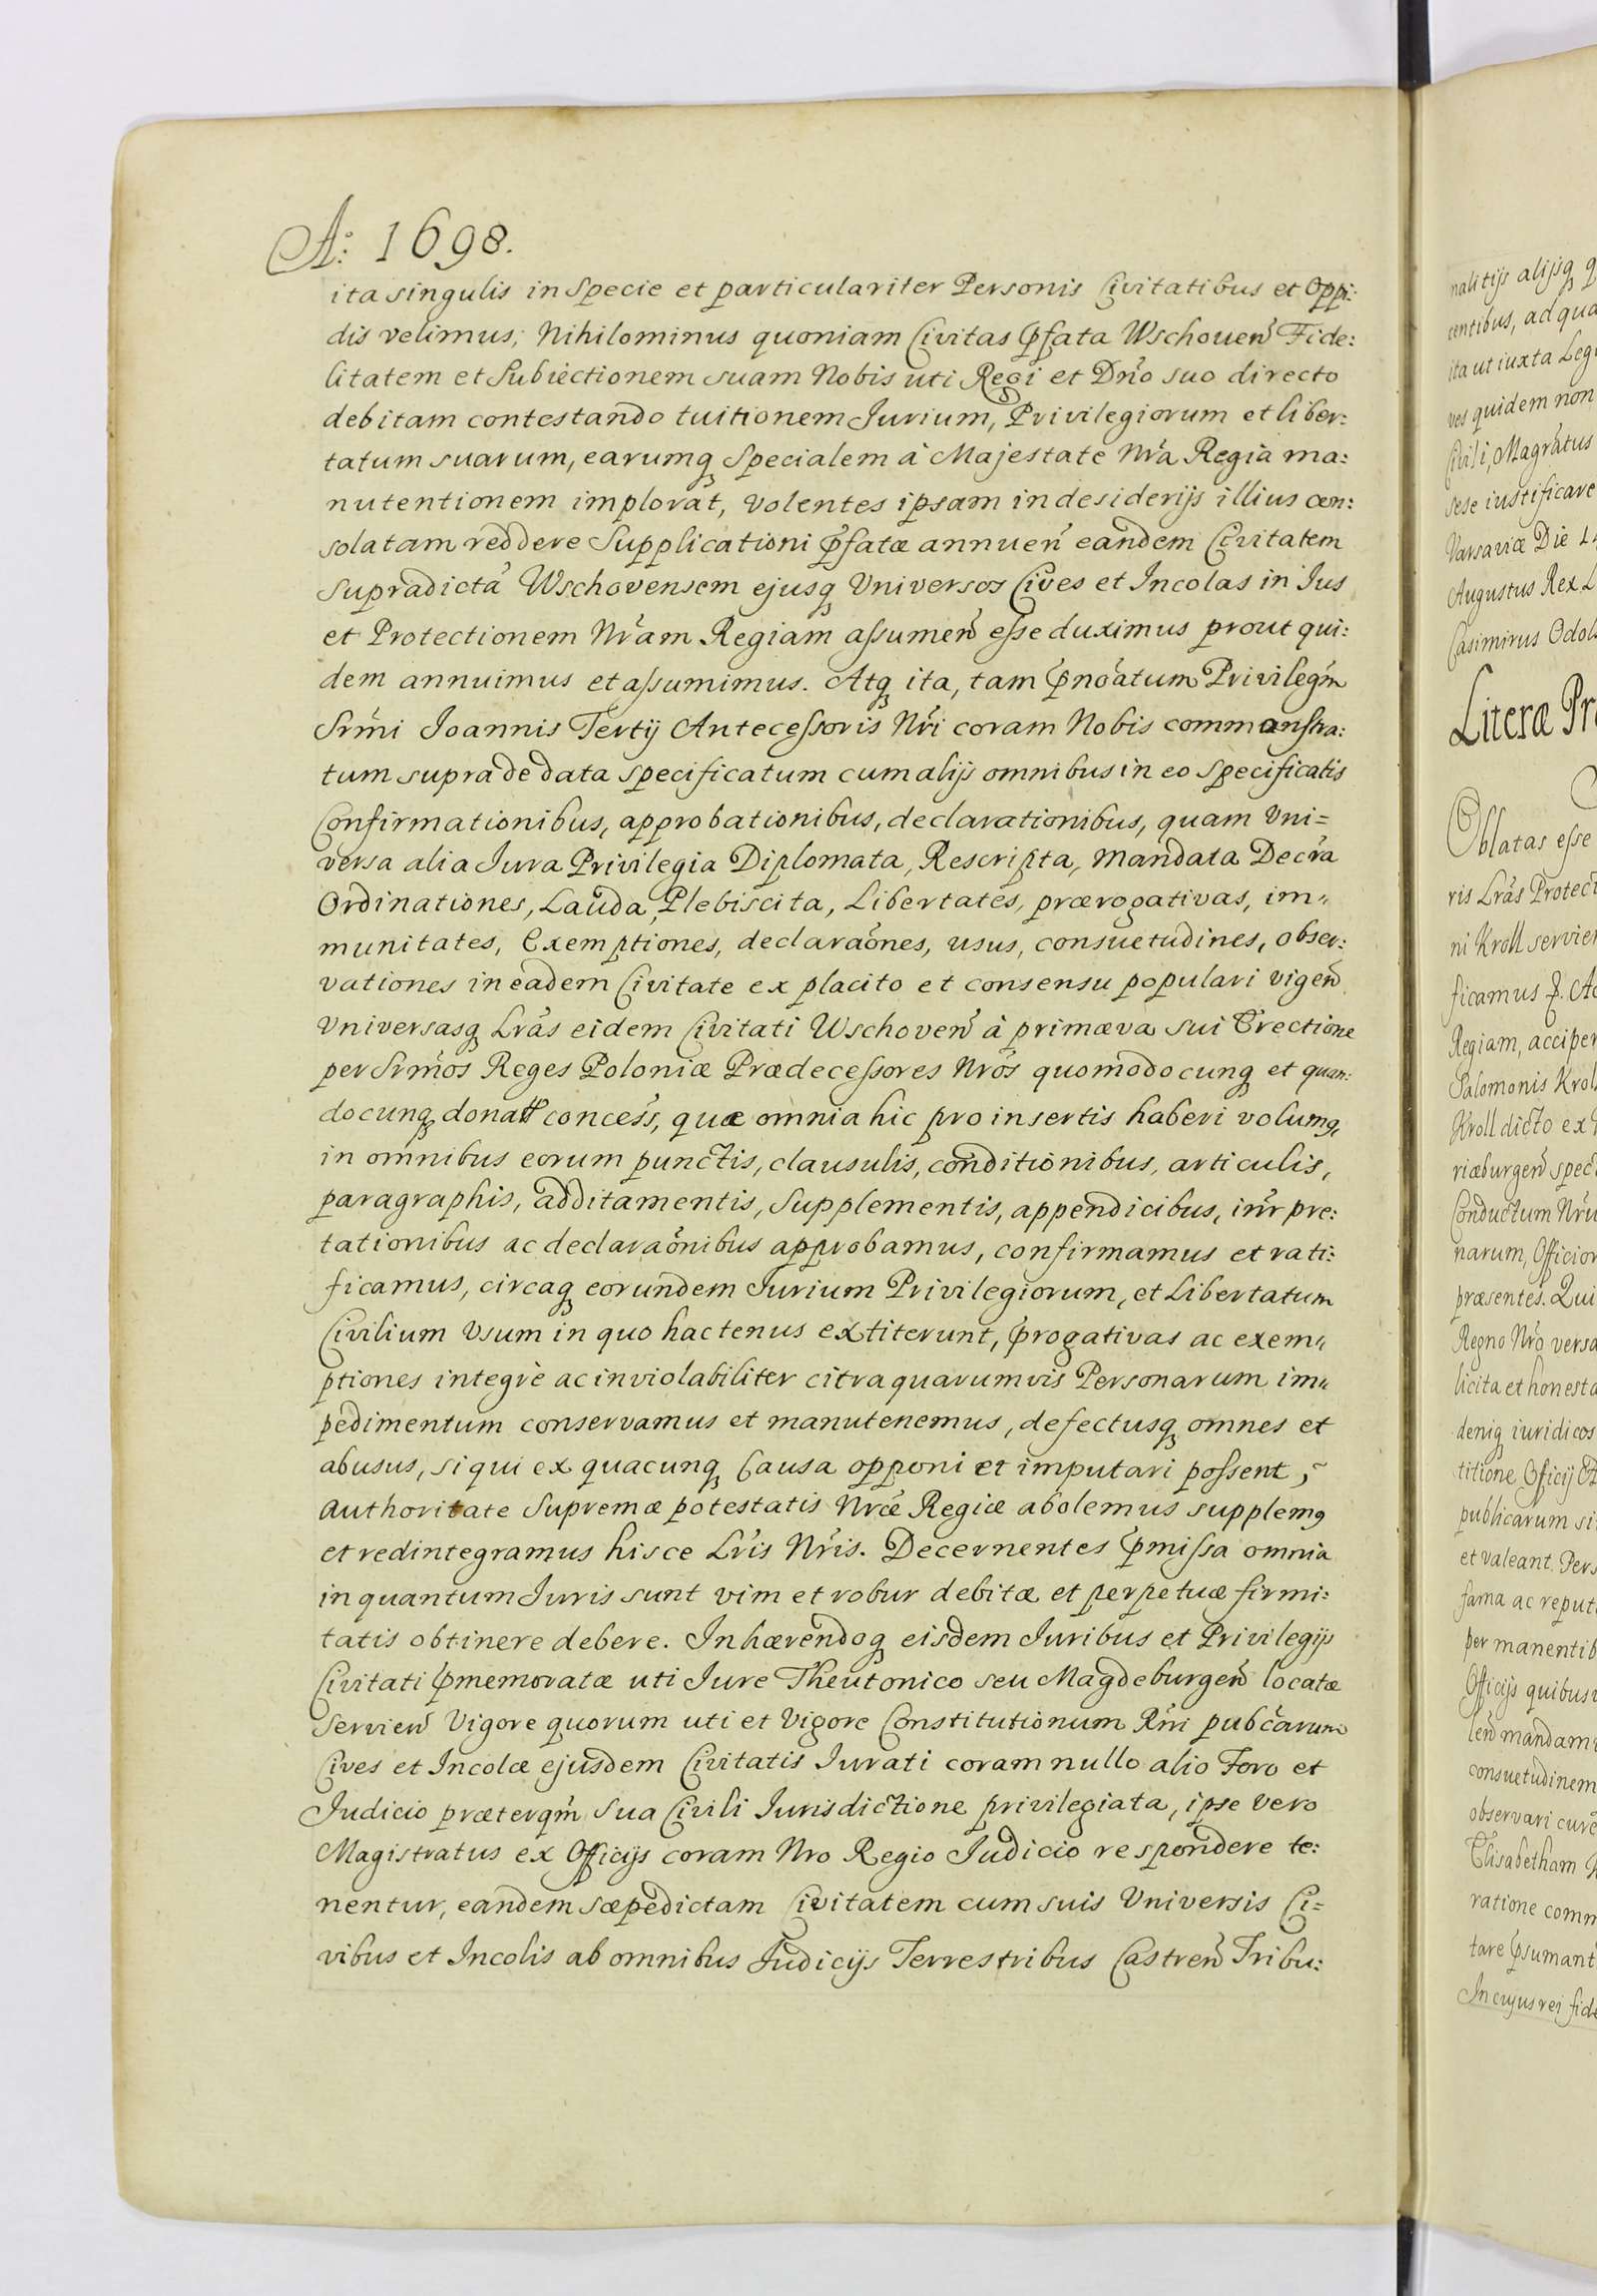 A: 1698.
ita singulis in Specie et particulariter Personis Civitatibus et Oppi:
dis velimus; Nihilominus quoniam Civitas p̄fata Wschoueñ Fide:
litatem et Subiectionem suam Nobis uti Regi et Dño suo directo
debitam contestando tuitionem Iurium, Privilegiorum et liber:
tatum suarum, earumq₃ Specialem à Majestate Nr̃a Regia ma:
nutentionem implorat, volentes ipsam in desiderijs illius con:
solatam reddere Supplicationi p̄fatæ annueñ eandem Civitatem
supradictã Wschovensem ejusq₃ Universos Cives et Incolas in Ius
et Protectionem Nr̃am Regiam aſsumeñ eſse duximus prout qui:
dem annuimus et aſsumimus. Atq₃ ita, tam p̄noãtum Privilegm̃
Srm̃i Ioannis Tertij Anteceſsoris Nr̃i coram Nobis commonstra:
tum supra de data specificatum cum alijs omnibus in eo specificatis
Confirmationibus, approbationibus, declarationibus, quam Vni=
versa alia Iura Privilegia Diplomata, Rescripta, Mandata Decr̃a
Ordinationes, Lauda, Plebiscita, Libertates, prærogativas, im„
munitates, Exemptiones, declaraõnes, usus, consuetudines, obser:
vationes in eadem Civitate ex placito et consensu populari vigeñ
Vniversasq₃ Lr̃as eidem Civitati Wschoveñ à primæva sui Erectione
per Srm̃os Reges Poloniæ Prædeceſsores Nr̃os quomodocunq₃ et quan:
docunq₃ donatt conceſs̃, quæ omnia hic pro insertis haberi volumꝰ,
in omnibus eorum punctis, clausulis, conditionibus, articulis,
paragraphis, additamentis, Supplementis, appendicibus, inr̃pre:
tationibus ac declaraõnibus approbamus, confirmamus et rati:
ficamus, circaq₃ eorundem Iurium Privilegiorum, et Libertatum
Civilium Vsum in quo hactenus extiterunt, p̄rogativas ac exem„
ptiones integrè ac inviolabiliter citra quarumvis Personarum im„
pedimentum conservamus et manutenemus, defectusq₃ omnes et
abusus, si qui ex quacunq₃ Causa opponi et imputari poſsent,
Authoritate Supremæ potestatis Nr̃æ Regiæ abolemus supplemꝰ
et redintegramus hisce Lr̃is Nr̃is. Decernentes p̄miſsa omnia
in quantum Iuris sunt vim et robur debitæ et perpetuæ firmi:
tatis obtinere debere. Inhærendoq₃ eisdem Iuribus et Privilegijs
Civitati p̄memoratæ uti Iure Theutonico seu Magdeburgeñ locatæ
Servieñ Vigore quorum uti et Vigore Constitutionum Rñi pubčarum
Cives et Incolæ ejusdem Civitatis Iurati coram nullo alio Foro et
Iudicio præterqm̃ Sua Civili Iurisdictione privilegiata, ipse vero
Magistratus ex Officijs coram Nro Regio Iudicio respondere te:
nentur, eandem sæpedictam Civitatem cum suis Universis Ci=
vibus et Incolis ab omnibus Iudicijs Terrestribus Castreñ Tribu:
nalitijs alijsq₃
centibus, ad
ita ut iuxta
ves quidem non
Civili, Magrãtus
sese iustificare
Varsaviæ Die
Augustus Rex
Casimirus
Literæ
Oblatas eſse
ris Lr̃as
ni Kroll
ficamus
Regiam,
Salomonis
Kroll dicto ex
riæburgeñ
Conductum
narum,
præsentes. Qui
Regno Nr̃o
licita et
deniq₃ iuridicos
titione Officij
publicarum
et valeant.
fama ac
per
Officijs
leñ
consuetudinem
observari
Elisabetham
ratione
tare
In cujus rei